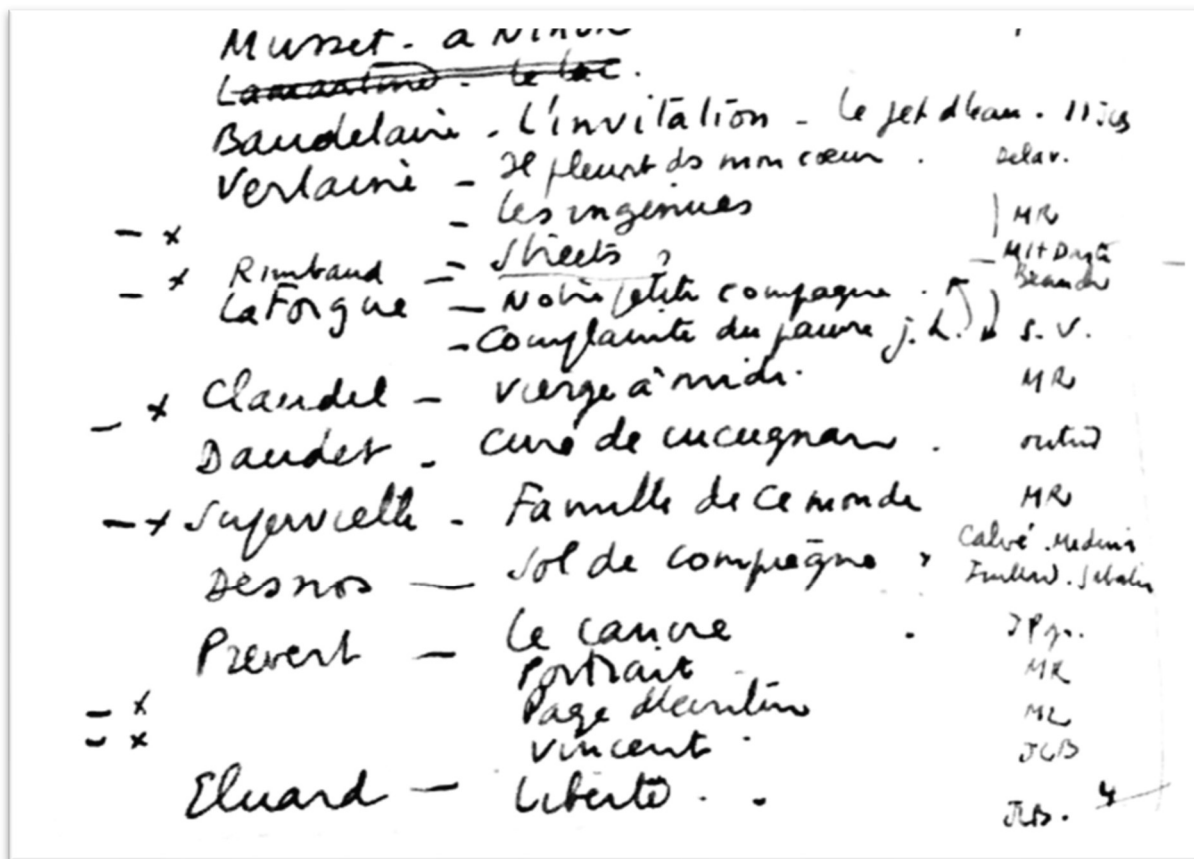 Musset - a Ninon
Lamartine - le lac.
Baudelaire - L'invitation - le jet d'eau.
Verlaine - Il pleut ds mon cœur. Delav.
- x - les ingénues MR
- Streets
x Rimbaud -
- LaForgue - Notre petite compagne.
- Complainte du pauvre j. h. S. V.
- x Claudel - vierge à midi. MR
Daudet - curé de cucugnan.
- x Supervielle - Famille de ce monde MR
Desnos - Sol de compiègne Calvé. Medina
Prevert - Le cancre
Portrait MR
- x Page d'écriture
- x Vincent JCB
Eluard - Liberté. 4